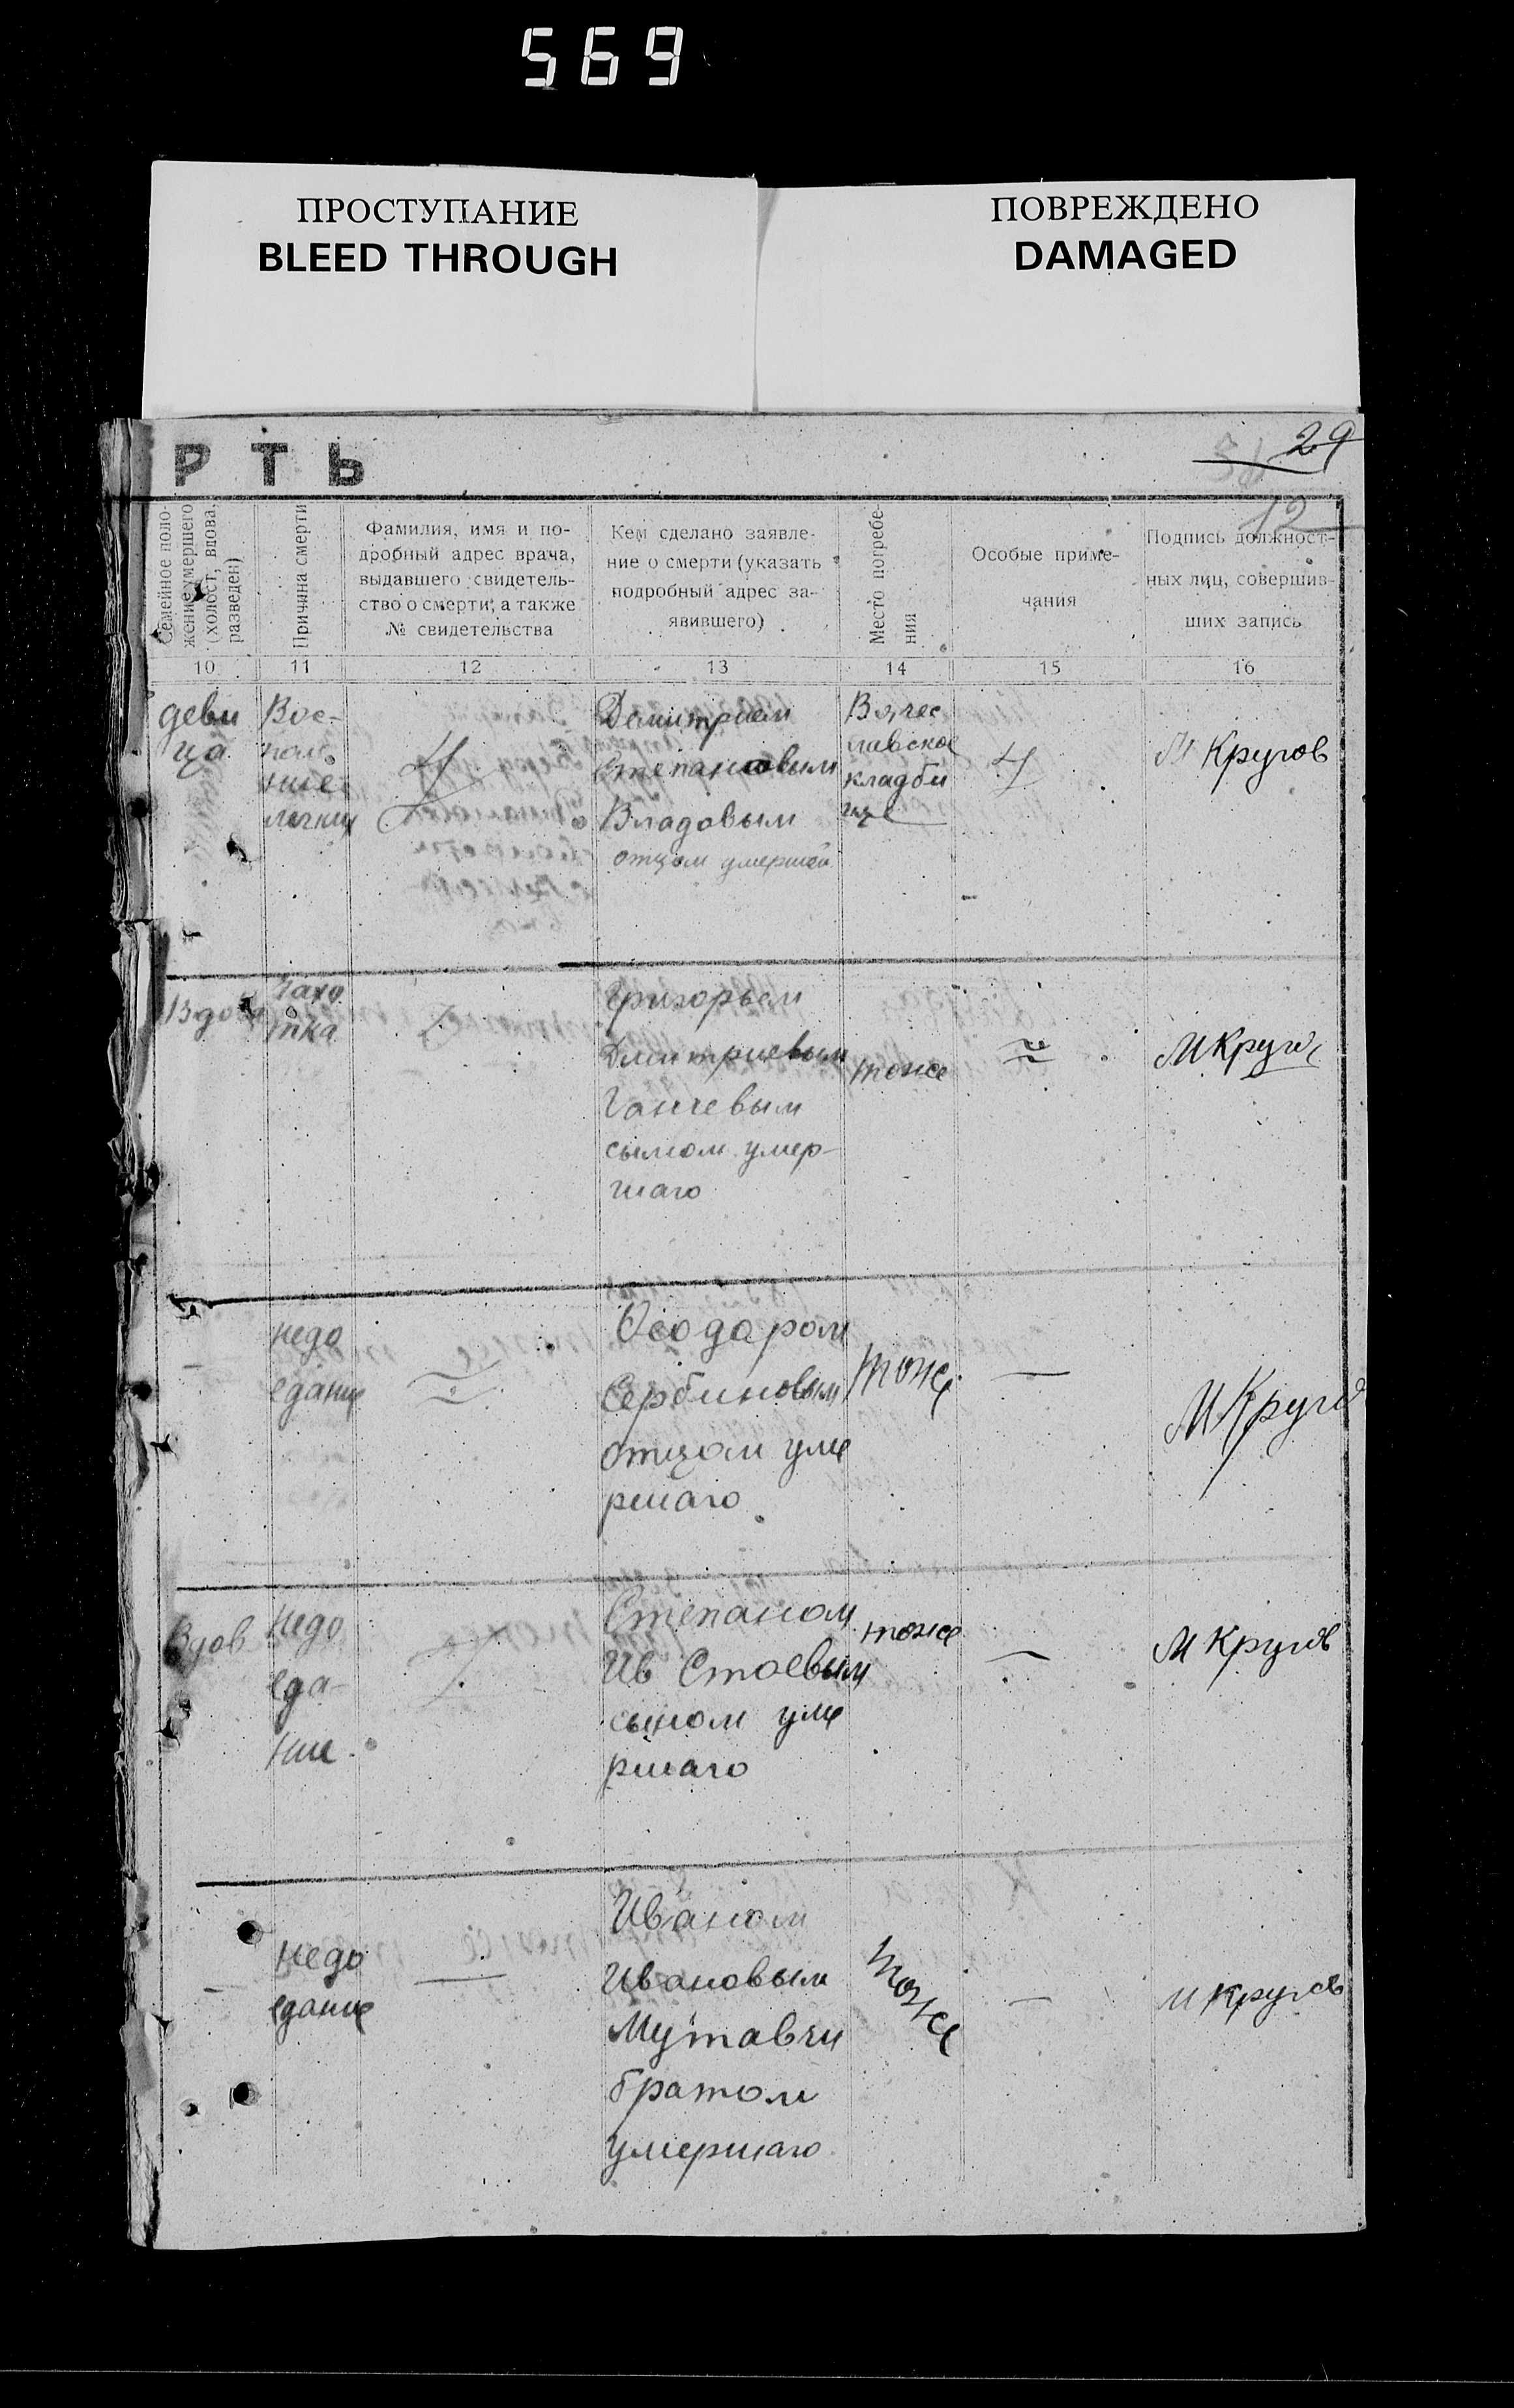 569
ПРОСТУПАНИЕ
BLEED THROUGH
ПОВРЕЖДЕНО
DAMAGED
Р Т Ь
29
12
Семейное поло-
жение умершего
(холост, вдова,
разведен)
Причина смерти
Фамилия, имя и по-
дробный адрес врача,
выдавшего свидетель-
ство о смерти, а также
№ свидетельства
Кем сделано заявле-
ние о смерти (указать
подробный адрес за-
явившего)
Место погребе-
ния
Особые приме-
чания
Подпись должност-
ных лиц, совершив-
ших запись
10 11 12 13 14 15 16
деви
ца
Вос-
пале
ние
легких
Дмитрием
Степановым
Владовым
отцом умершей
кладби
ще
М Кругов
Вдова
Чахо
тка
Григорьем
Дмитриевым
Ганчевым
сыном умер-
шаго
тоже
М Кругов
недо
едание
Феодаром
Сербиновым
отцом уме
ршаго
тоже
—
М Кругов
Вдов
недо
еда-
ние
Степаном
Ив Стоевым
сыном уме
ршаго
тоже
—
М Кругов
недо
едание
—
Иваном
Ивановым
Мутавчи
братом
умершаго
тоже
—
М Кругов